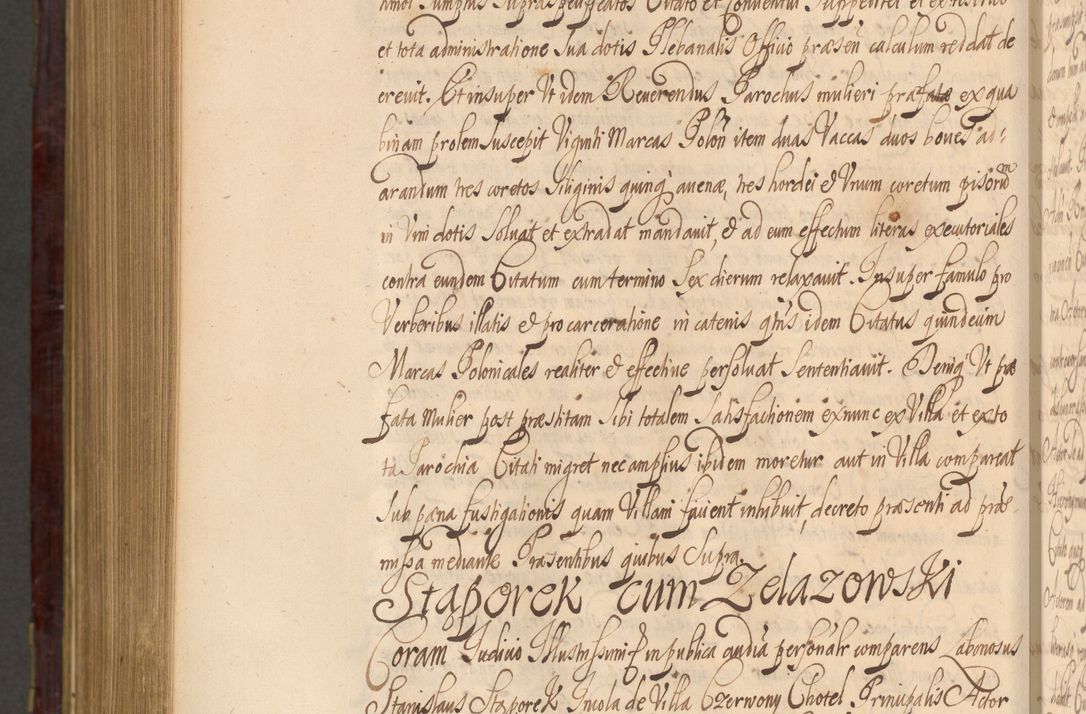 et tota administratione sua dotis Plebanalis Officio præsen calculum reddat de
crevit. Et insuper Ut idem Reverendus Parochus mulieri præfatæ ex qua
binam prolem suscepit Viginti Marcas Polon item duas Vaccas duos boves ad:
arandum tres coretos Siliginis quinq avenæ, tres hordei & Unum coretum pisorum
in Vim dotis Solvat et extradat mandavit, & ad eum effectum literas executoriales
contra eundem Citatum cum termino Sex dierum relaxavit. Insuper famulo pro
Verberibus illatis & pro carceratione in catenis idem Citatus quindecim
Marcas Polonicales realiter & effective persolvat Sententiavit. Deniq Ut præ
fata Mulier post præstitam Sibi totalem Satisfactionem exnunc ex Villa et ex to
ta Parochia Citati migret nec amplius ibidem moretur aut in Villa compareat
Sub pæna fustigationis quam Villani facient inhibuit, decreto præsenti ad præ
missa mediante Præsentibus quibus Supra
Staporek cum Zelazowski
Coram Iudicio Illustrissimi & in publica audia personalr comparens Laboriosus
Stanislaus Staporek Incola de Villa Czerwony Chotel Principalis Actor